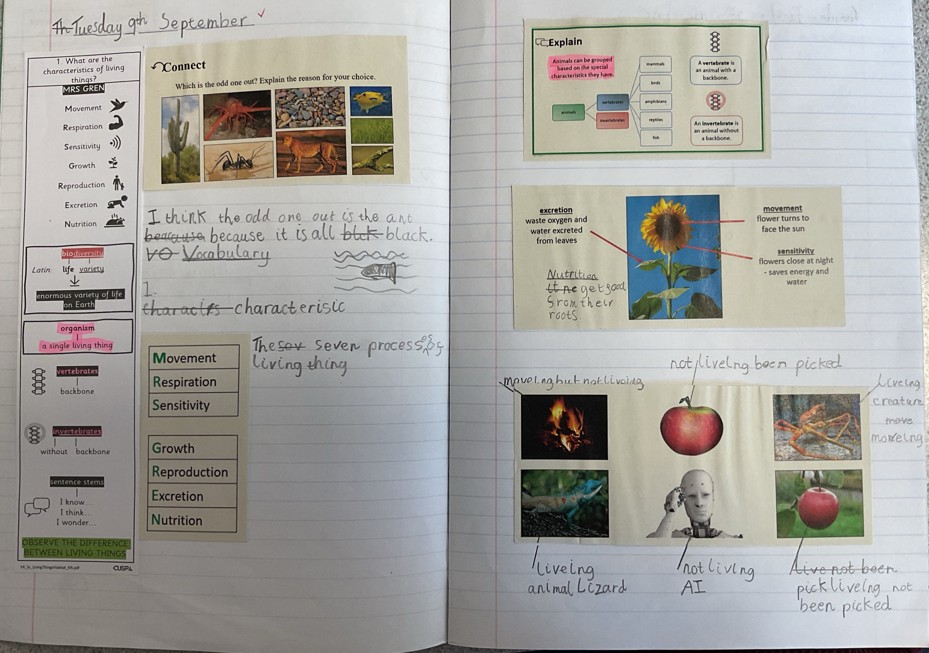 Th Tuesday 9th September
1. What are the
characteristics of living
things?
MRS GREN
Movement
Respiration
Sensitivity
Growth
Reproduction
Excretion
Nutrition
biodiversity
Latin: life variety
enormous variety of life
on Earth
organism
a single living thing
vertebrates
backbone
invertebrates
without backbone
sentence stems
I know...
I think...
I wonder...
OBSERVE THE DIFFERENCE
BETWEEN LIVING THINGS
CUSP
Connect
Which is the odd one out? Explain the reason for your choice.
I think the odd one out is the ant
because because it is all black.
VO Vocabulary
1.
characteristic
Movement
Respiration
Sensitivity
Growth
Reproduction
Excretion
Nutrition
The seven process es of
living thing
Explain
Animals can be grouped
based on the special
characteristics they have.
animals
vertebrates
invertebrates
mammals
birds
amphibians
reptiles
fish
A vertebrate is
an animal with a
backbone.
An invertebrate is
an animal without
a backbone.
excretion
waste oxygen and
water excreted
from leaves
movement
flower turns to
face the sun
sensitivity
flowers close at night
- saves energy and
water
Nutrition
get good
from their
roots
moveing but not liveing
not liveing been picked
Liveing
creature
move
moveing
liveing
animal Lizard
not living
AI
Live not been
pick liveing not
been picked